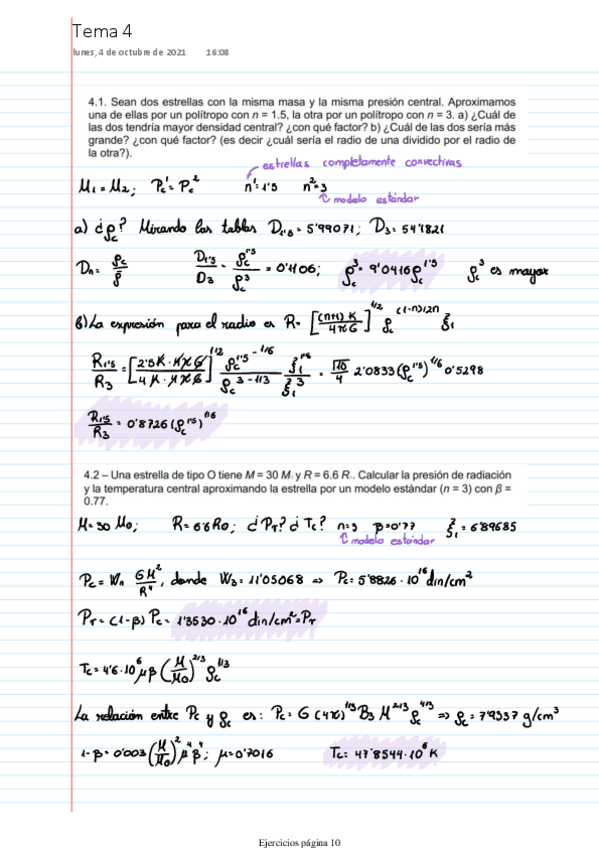 Tema 4
lunes, 4 de octubre de 2021 16:08
4.1. Sean dos estrellas con la misma masa y la misma presión central. Aproximamos
una de ellas por un polítropo con n = 1.5, la otra por un polítropo con n = 3. a) ¿Cuál de
las dos tendría mayor densidad central? ¿con qué factor? b) ¿Cuál de las dos sería más
grande? ¿con qué factor? (es decir ¿cuál sería el radio de una dividido por el radio de
la otra?).
estrellas completamente convectivas
M₁ = M₂; Pc¹ = Pc² n¹=1'5 n²=3
modelo estándar
a) ¿ρc? Mirando las tablas D₁.₅ = 5'99071; D₃ = 54'1821
Dn = ρc/ρ̄ D₁.₅/D₃ = ρc^1'5/ρc^3 = 0'1106; ρc^3 = 9'0416 ρc^1'5 ρc^3 es mayor
b) La expresión para el radio es R = [(n+1)K/4πG]^1/2 ρc^(1-n)/2n ξ₁
R₁.₅/R₃ = [2'5K·4πG/4K·4πG]^1/2 ρc^1'5 -1/6/ρc^3 -1/3 ξ₁^1'5/ξ₁^3 = √10/4 2'0833 (ρc^1'5)^1/6 0'5298
R₁.₅/R₃ = 0'8726 (ρc^1'5)^1/6
4.2 – Una estrella de tipo O tiene M = 30 M. y R = 6.6 R.. Calcular la presión de radiación
y la temperatura central aproximando la estrella por un modelo estándar (n = 3) con β =
0.77.
M = 30 M₀; R = 6'6 R₀; ¿Pr? ¿Tc? n=3 β=0'77 ξ₁ = 6'89685
modelo estándar
Pc = Wn GM²/R⁴, donde W₃ = 11'05068 ⇒ Pc = 5'8826·10^16 din/cm²
Pr = (1-β) Pc = 1'3530·10^16 din/cm² = Pr
Tc = 4'6·10^6 μβ (M/M₀)^2/3 ρc^1/3
La relación entre Pc y ρc es: Pc = G (4π)^1/3 B₃ M^2/3 ρc^4/3 ⇒ ρc = 7'9337 g/cm³
1-β = 0'003 (M/M₀)² μ⁴ β⁴; μ = 0'7016 Tc = 47'8544·10^6 K
Ejercicios página 10